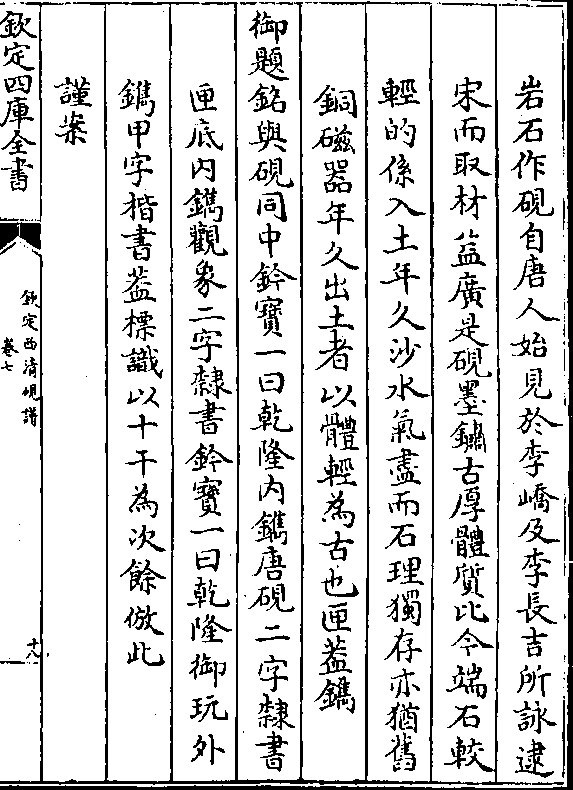 岩石作硯自唐人始見於李嶠及李長吉所詠逮
宋而取材益廣是硯墨鏽古厚體質比今端石較
輕的係入土年久沙水氣盡而石理獨存亦猶舊
銅磁器年久出土者以體輕為古也匣葢鐫
御題銘與硯同中鈐寶一曰乾隆内鐫唐硯二字隸書
匣底内鐫觀象二字隸書鈐寶一曰乾隆御玩外
鐫甲字楷書葢標識以十干為次餘倣此
謹案
欽定四庫全書
欽定西清硯譜
卷七
十八